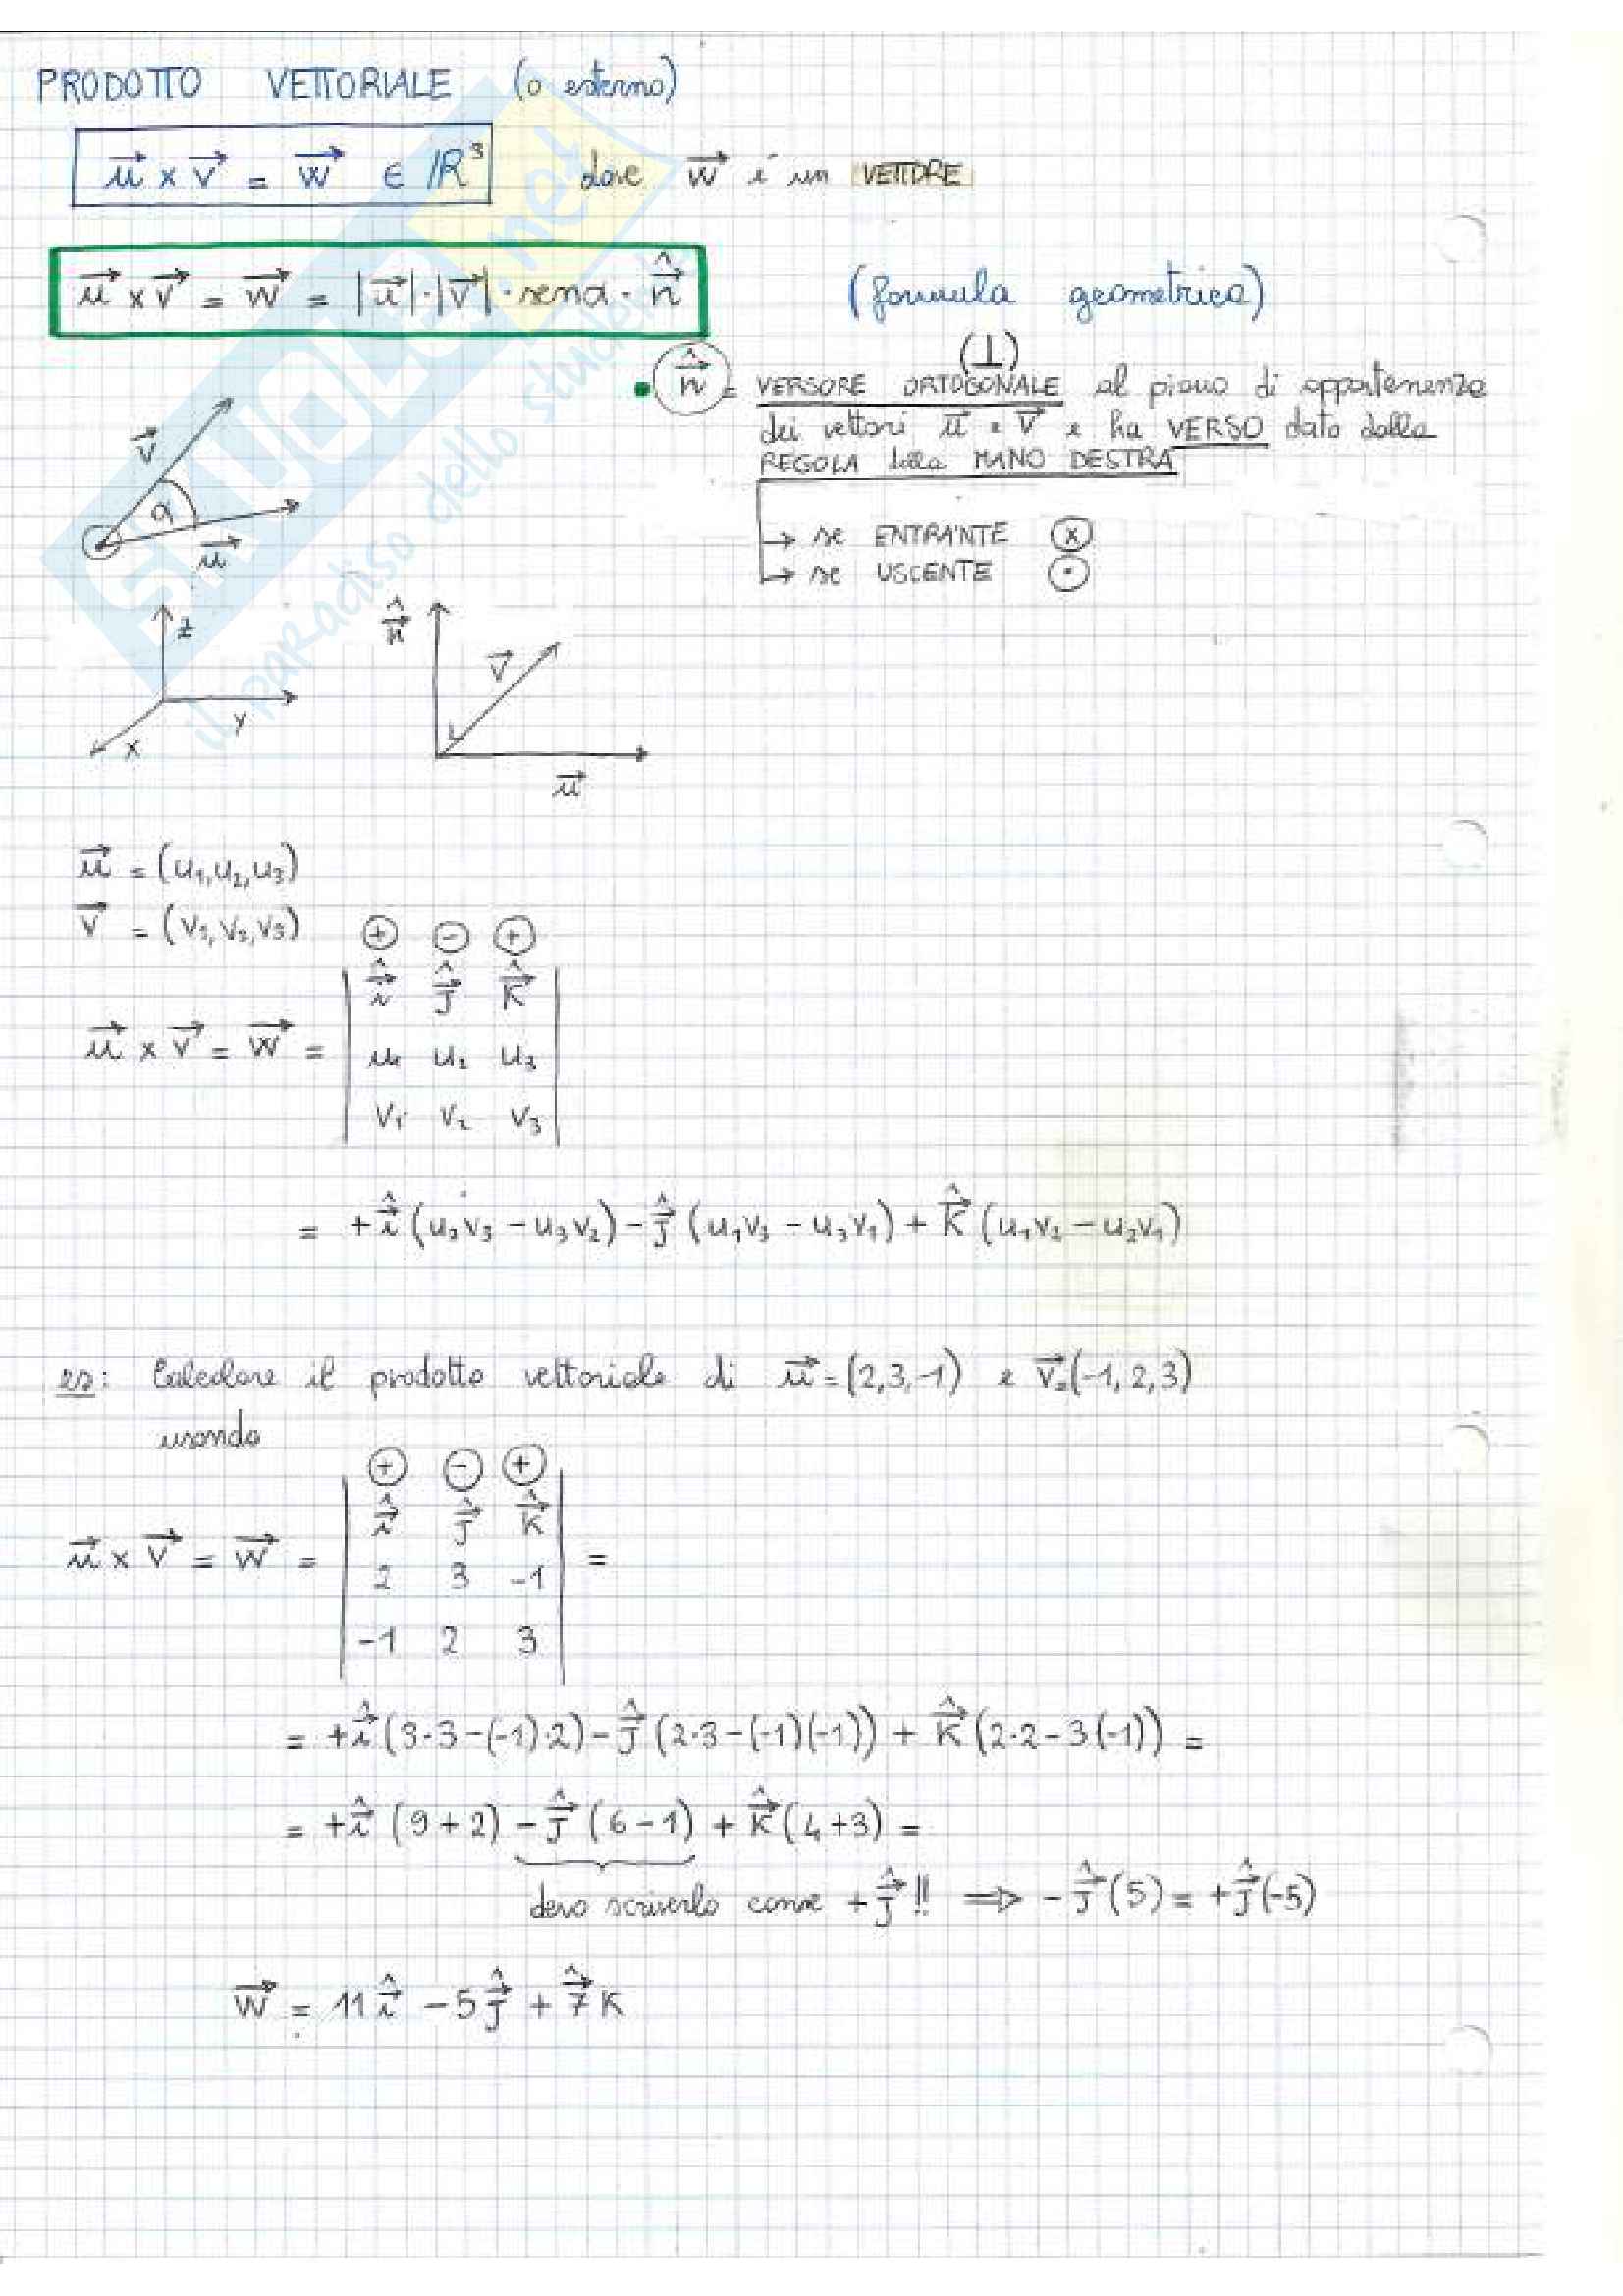 PRODOTTO VETTORIALE (o esterno)
u⃗ x v⃗ = w⃗ ∈ ℝ³ dove w⃗ è un VETTORE
u⃗ x v⃗ = w⃗ = |u⃗|·|v⃗|·senα·n̂ (formula geometrica)
(⊥)
• n̂ = VERSORE ORTOGONALE al piano di appartenenza
dei vettori u⃗ e v⃗ e ha VERSO dato dalla
REGOLA della MANO DESTRA
→ se ENTRANTE ⊗
→ se USCENTE ⊙
v⃗
α
u⃗
z
y
x
n̂
v⃗
u⃗
u⃗ = (u₁, u₂, u₃)
v⃗ = (v₁, v₂, v₃)
⊕ ⊖ ⊕
î ĵ k̂
u⃗ x v⃗ = w⃗ = | u₁ u₂ u₃ |
v₁ v₂ v₃
= +î (u₂v₃ - u₃v₂) - ĵ (u₁v₃ - u₃v₁) + k̂ (u₁v₂ - u₂v₁)
es: Calcolare il prodotto vettoriale di u⃗ = (2,3,-1) e v⃗ = (-1,2,3)
usando
⊕ ⊖ ⊕
î ĵ k̂
u⃗ x v⃗ = w⃗ = | 2 3 -1 | =
-1 2 3
= +î (3·3-(-1)·2) - ĵ (2·3-(-1)(-1)) + k̂ (2·2-3(-1)) =
= +î (9+2) - ĵ (6-1) + k̂ (4+3) =
devo scriverlo come +ĵ!! ⟹ -ĵ(5) = +ĵ(-5)
w⃗ = 11î - 5ĵ + 7k̂
SKUOLA.net
il paradiso dello studente